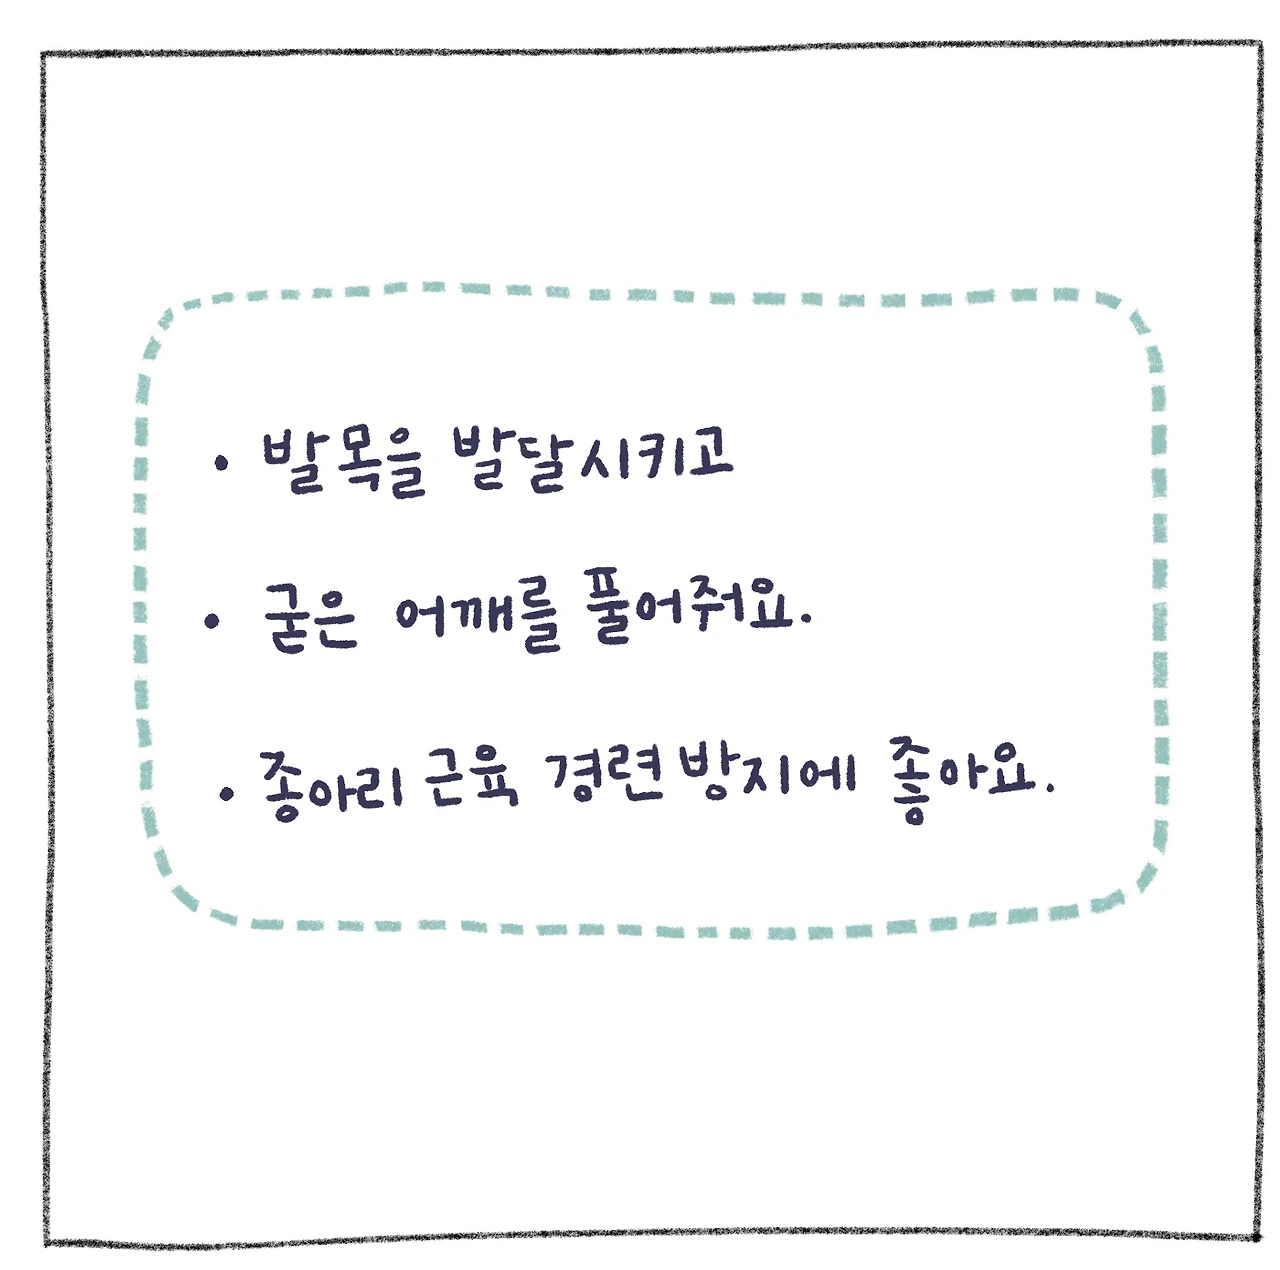 • 발목을 발달시키고
• 굳은 어깨를 풀어줘요.
• 종아리 근육 경련 방지에 좋아요.